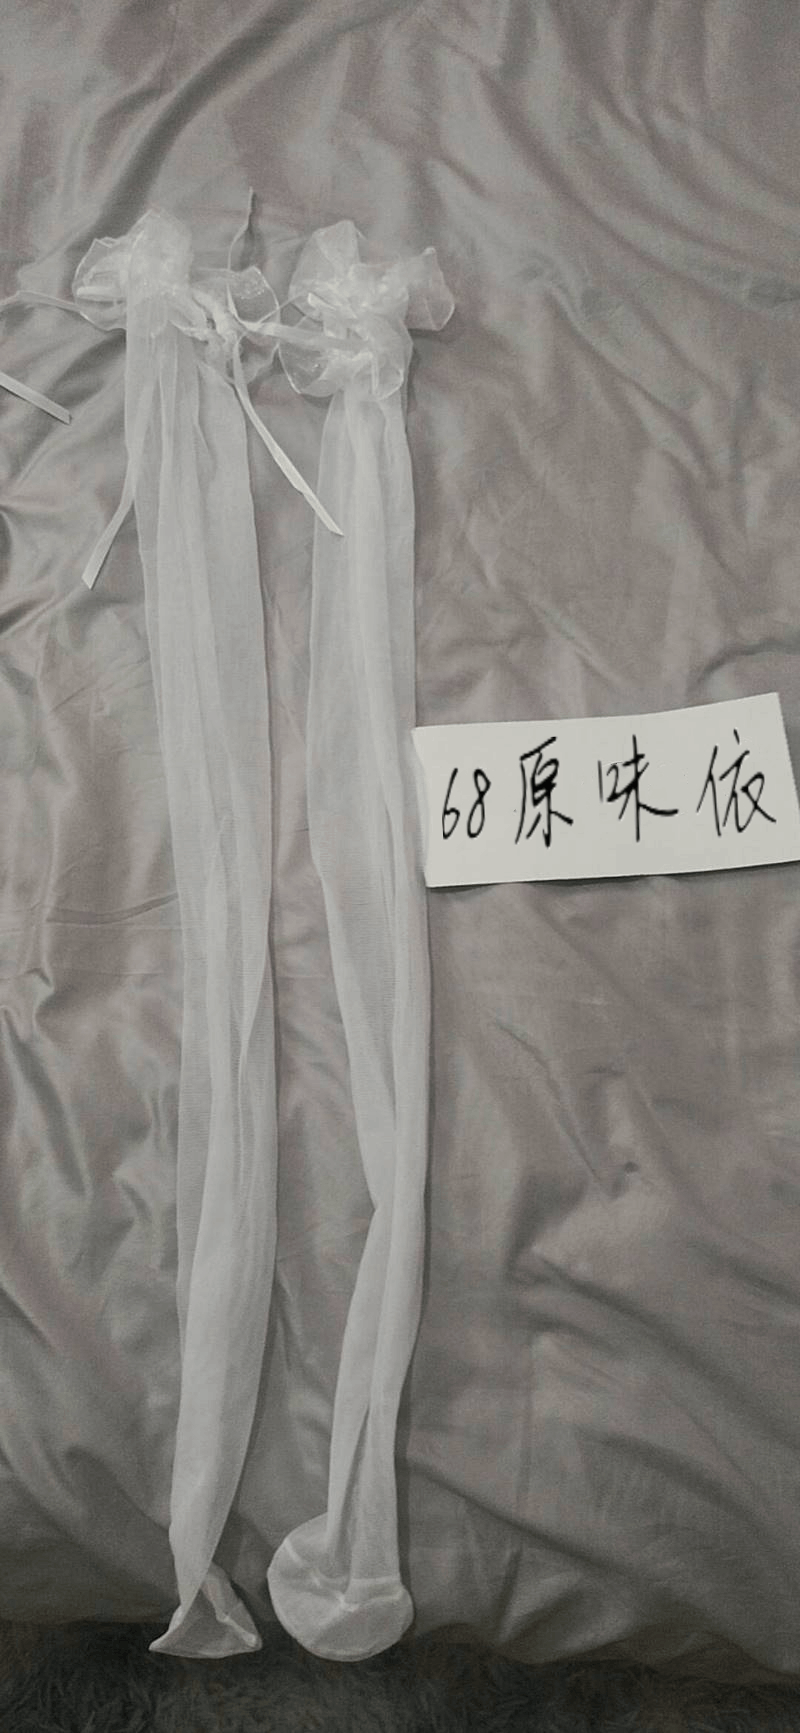 68原味依